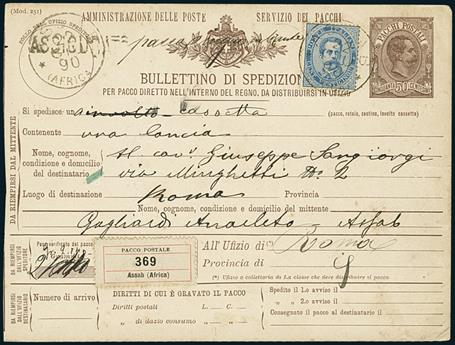 (Mod. 251)
AMMINISTRAZIONE DELLE POSTE SERVIZIO DEI PACCHI
ASSAB
90
(AFRICA)
PACCHI POSTALI
BULLETTINO DI SPEDIZIONE
PER PACCO DIRETTO NELL'INTERNO DEL REGNO, DA DISTRIBUIRSI IN UFIZIO
DA RIEMPIERSI DAL MITTENTE
Si spedisce un involto cassetta
(pacco, rotolo, cestino, involto cassetta)
Contenente una lancia
Nome, cognome, condizione e domicilio del destinatario
Al cav. Giuseppe Sangiorgi
via Minghetti N. 2
Luogo di destinazione Roma Provincia
Nome, cognome, condizione e domicilio del mittente
Gagliardi Anacleto Assab
DA RIEMPIERSI DALL'UFIZIO SPEDITORE
PACCO POSTALE
369
Assab (Africa)
All'Ufizio di Roma
Provincia di
(*) Ufizio o collettoria di 1.a classe che deve distribuire il pacco
Numero di arrivo
DIRITTI DI CUI È GRAVATO IL PACCO
Diritti postali L. C.
„ di dazio consumo „ „
Spedito il 1.o avviso il
„ 2.o avviso il
Consegnato il pacco al destinatario il